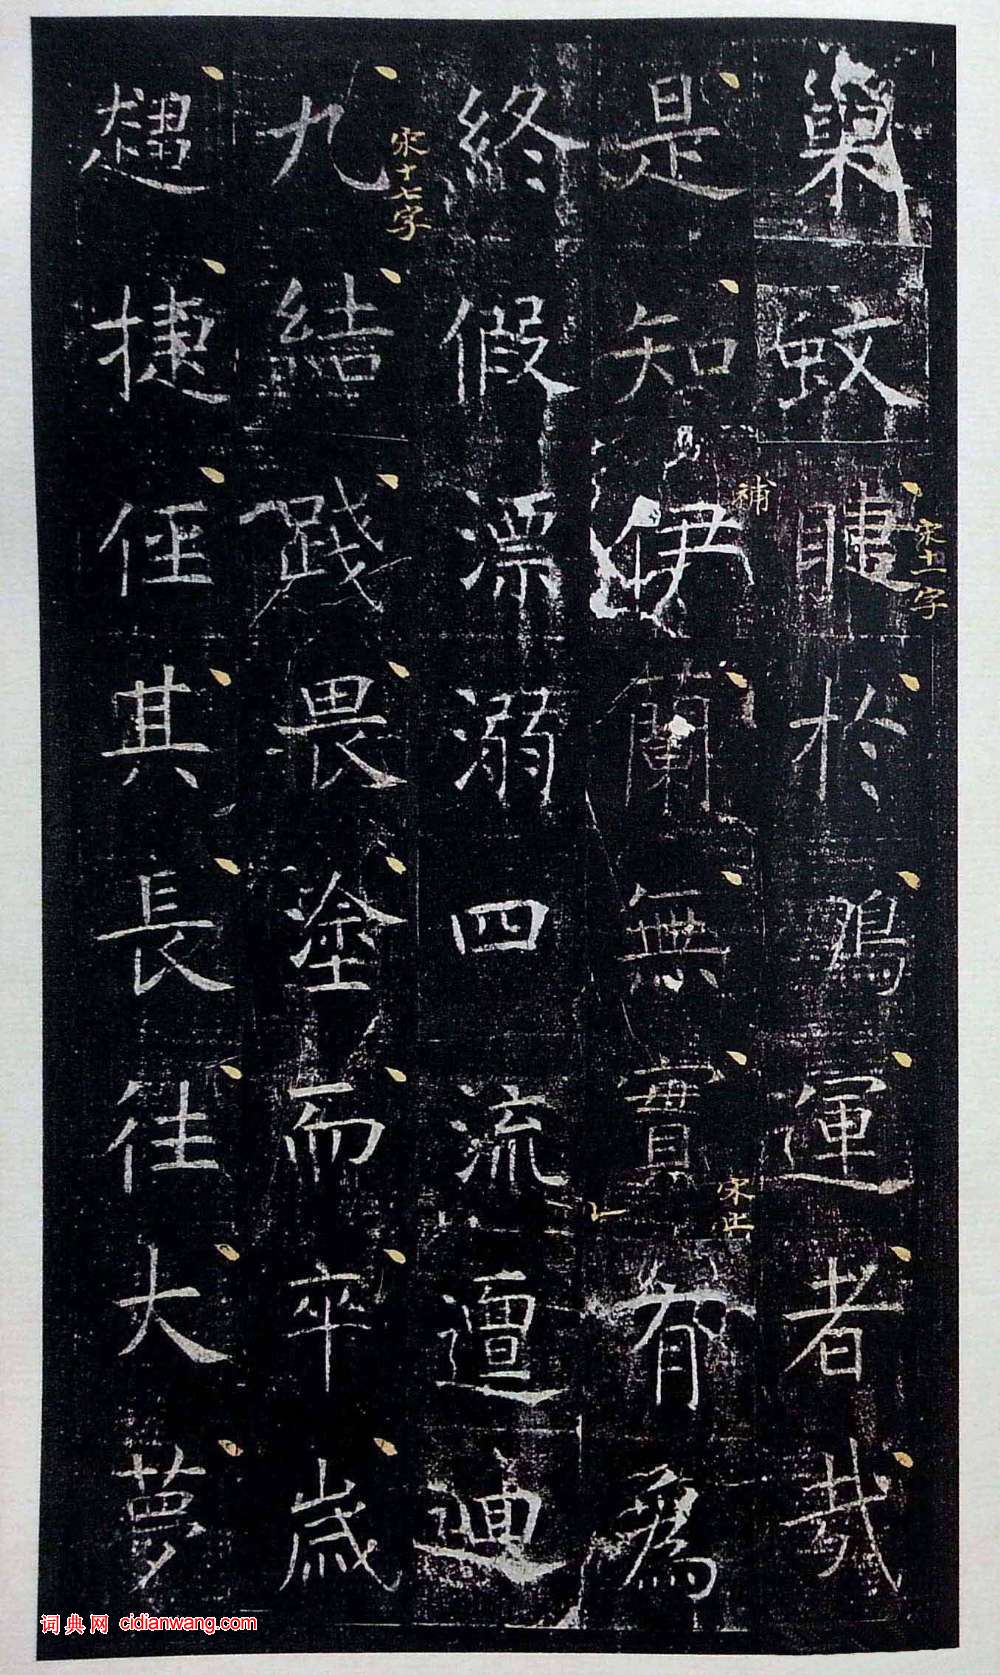 巢蚊睫於運者哉
宋十一字
是知伊蘭無實有為
補
宋止
終假漂溺四流邅迴
宋十七字
九結踐畏塗而卒歲
趨捷俓其長往大夢
词典网 cidianwang.com